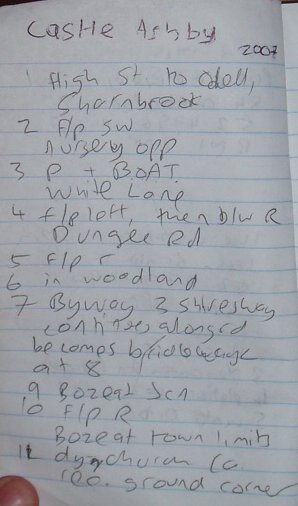 Castle Ashby
2007
1 High St. to Odell,
Sharnbrook
2 F/p SW
nursery opp
3 P + BOAT
White Lane
4 f/p left, then b/w R
Dungee Rd
5 F/p r
6 in woodland
7 Byway 3 shiresway
continues along rd
becomes bridleway
at 8
9 Bozeat Jcn
10 F/p R
Bozeat town limits
11
ground corner